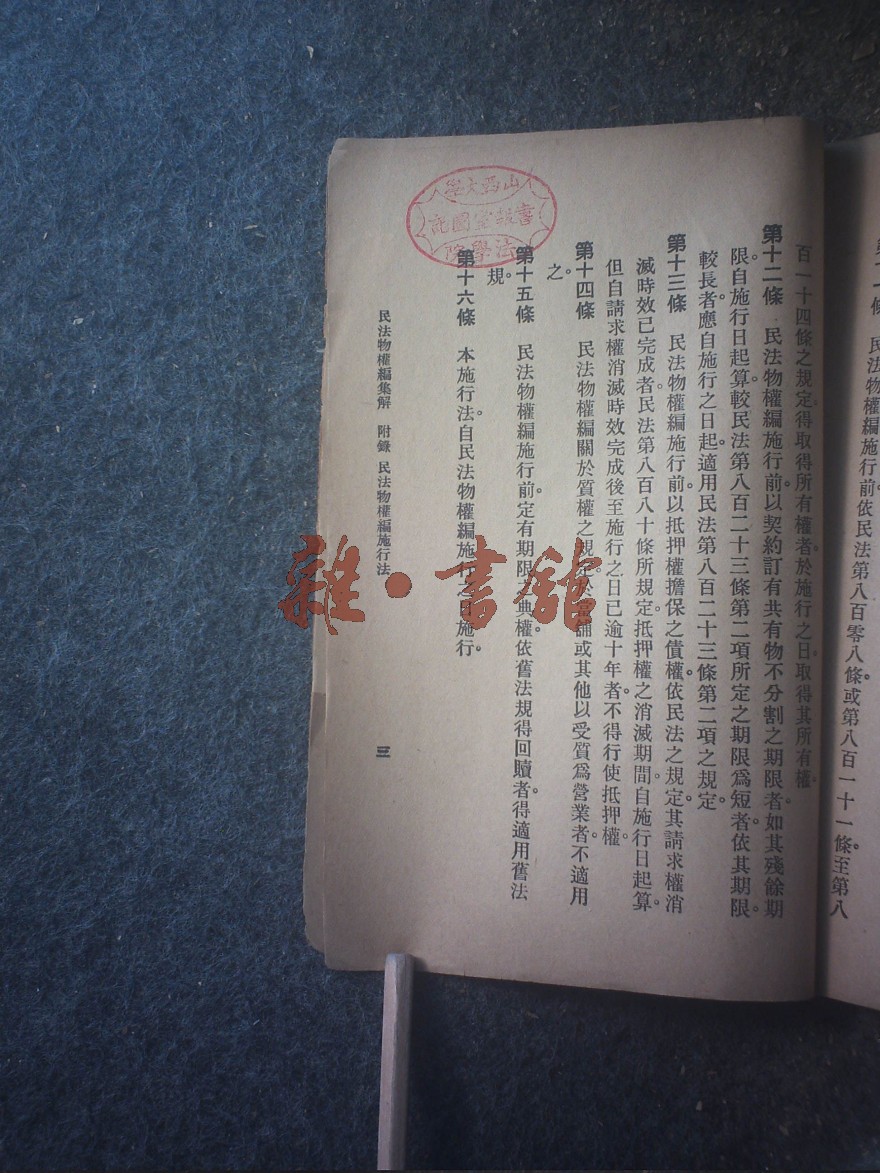 民法物權編施行前。依民法第八百零八條或第八百一十一條至第八
百一十四條之規定。得取得所有權者。於施行之日。取得其所有權。
第十二條　民法物權編施行前。以契約訂有共有物不分割之期限者。如其殘餘期
限。自施行日起算。較民法第八百二十三條第二項所定之期限爲短者。依其期限。
較長者。應自施行之日起。適用民法第八百二十三條第二項之規定。
第十三條　民法物權編施行前。以抵押權擔保之債權。依民法之規定。其請求權消
滅時效已完成者。民法第八百八十條所規定。抵押權之消滅期間。自施行日起算。
但自請求權消滅時效完成後。至施行之日已逾十年者。不得行使抵押權。
第十四條　民法物權編關於質權之規定。於當舖或其他以受質爲營業者。不適用
之。
第十五條　民法物權編施行前。定有期限之典權。依舊法規得回贖者。得適用舊法
規。
第十六條　本施行法。自民法物權編施行之日施行。
民法物權編集解　附錄　民法物權編施行法
三
山西大學
法學院
雜·書館